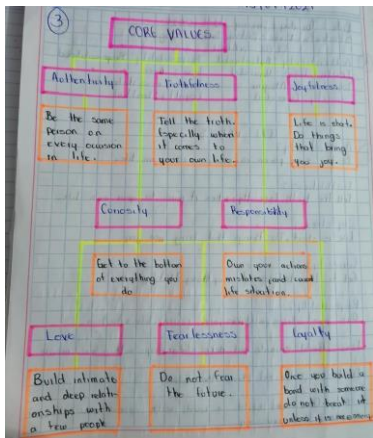 3
CORE VALUES
Authenticity
Truthfulness
Joyfulness
Be the same
person on
every occasion
in life.
Tell the truth.
Especially when
it comes to
your own life.
Life is short.
Do things
that bring
you joy.
Curiosity
Responsibility
Get to the bottom
of everything you
do
Own your actions
mistakes and
life situation.
Love
Fearlessness
Loyalty
Build intimate
and deep relati-
onships with
a few people
Do not fear
the future.
Once you build a
bond with someone
do not break it
unless it is necessary